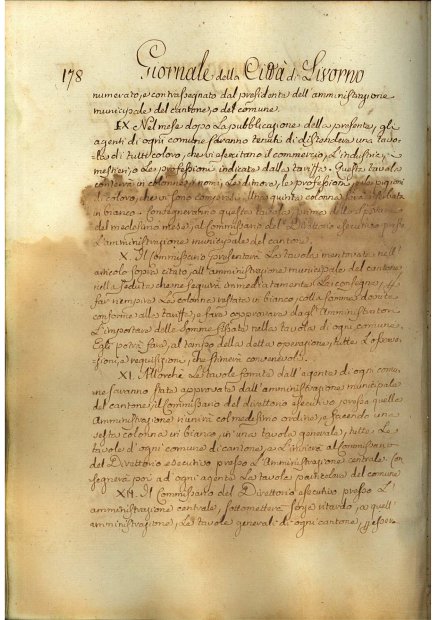 178 Giornale della Città di Livorno
numerato, e contrassegnato dal presidente dell'amministrazione
municipale del cantone, o del comune.
IX. Nel mese dopo la pubblicazione della presente, gli
agenti di ogni comune saranno tenuti di distendere una tavo-
la di tutti coloro, che vi esercitano il commercio, l'industrie, i
mestieri, e le professioni indicate dalla tariffa. Questa tavola
conterrà in colonne i nomi, le dimore, le professioni, e le pigioni
di coloro, che vi sono compresi. Una quinta colonna sarà
in bianco: consegneranno questa tavola, prima dello spirare
del medesimo mese, al Commissario del Direttorio esecutivo presso
l'amministrazione municipale del cantone.
X. Il Commissario presenterà la tavola mentovata nell'
articolo sopra citato, all'amministrazione municipale del cantone,
nella seduta che ne seguirà immediatamente la consegna,
far riempire le colonne restate in bianco, colla somma dovuta
conforme alla tariffa, e fare approvare dagli Amministratori
l'importare delle somme fissate nella tavola di ogni comune.
Egli potrà fare, al tempo della detta operazione, tutte l'osserva-
zioni, e requisizioni, che stimerà convenevoli.
XI. Allorchè le tavole fornite dall'agente di ogni comu-
ne saranno state approvate dall'amministrazione municipale
del cantone, il Commissario del direttorio esecutivo presso quella
Amministrazione riunirà col medesimo ordine, e facendo una
sesta colonna in bianco, in una tavola generale, tutte le
tavole d'ogni comune di cantone, e l'invierà al Commissario
del Direttorio esecutivo presso l'Amministrazione centrale. Con
segnerà poi ad ogni agente la tavola particolare del comune
XII. Il Commissario del Direttorio esecutivo presso l'
amministrazione centrale, sottometterà senza ritardo, a quell'
amministrazione, le tavole generali di ogni cantone,